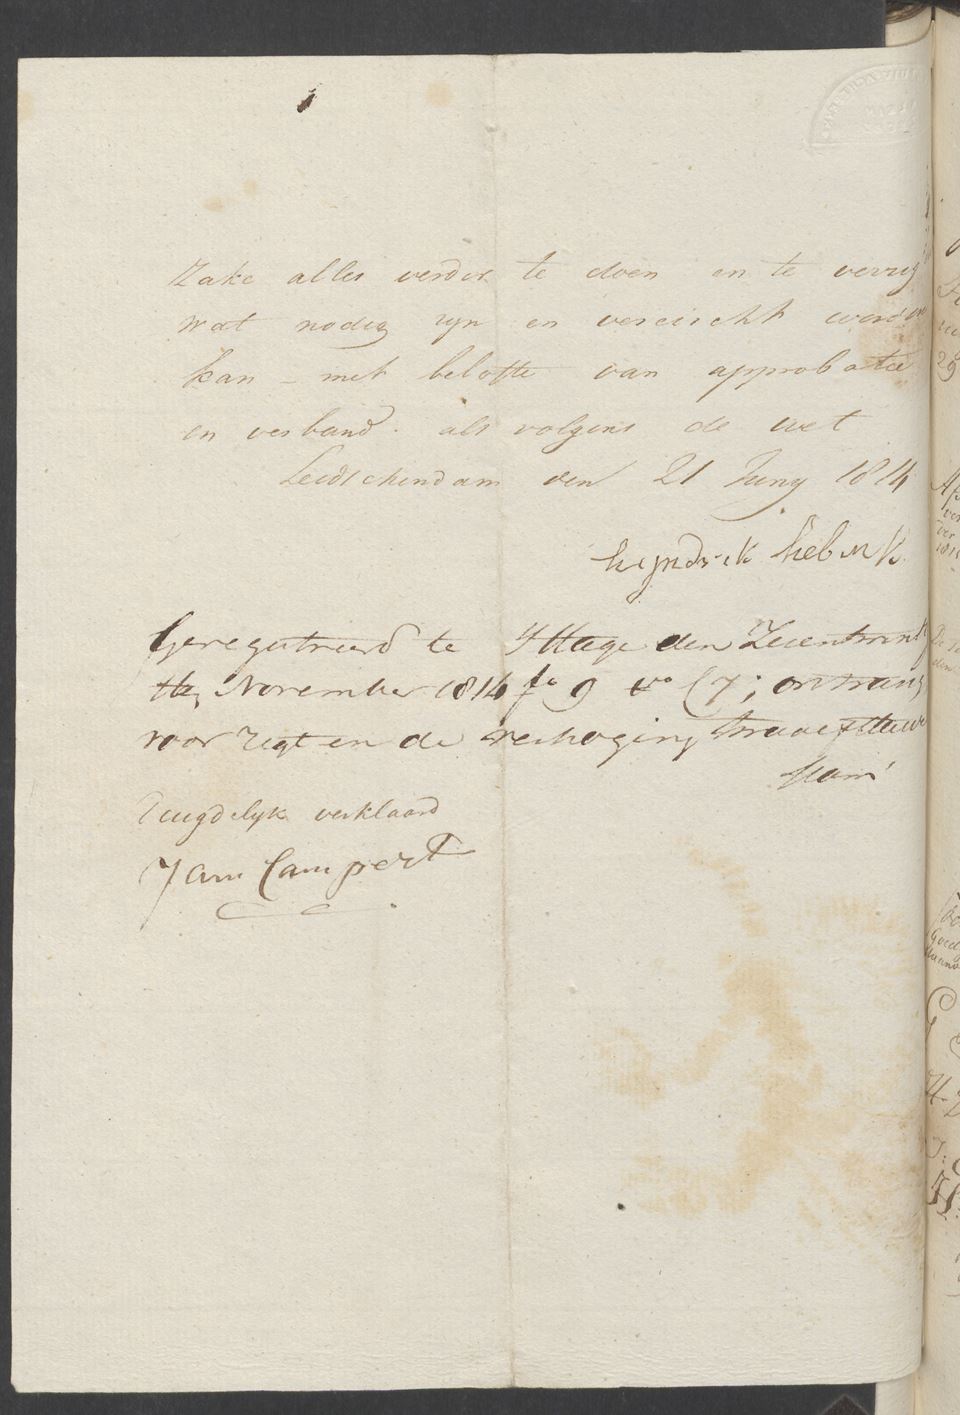 Zake alles verder te doen en te verrig
wat nodig zyn en vereischt worden
kan – met belofte van approbatie
en verband. als volgens de wet
Leidschendam den 21 Juny 1814
hyndrik
Geregistreerd te S'Hage den Zeventwintig
ste November 1814 fo 9 vo C 7; ontvang
voor regt en de verhoging twaalf stuiv
Deugdelyk verklaard
Jan Campert